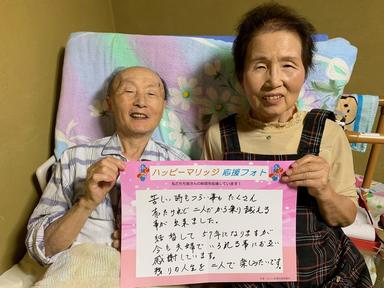 ハッピーマリッジ 応援フォト
私たちも皆さんの幸せを応援しています！
苦しい時もつらい事も たくさん
有たけれど 二人だから乗り越える
事が出来ました。
結婚して 57年になりますが
今も夫婦でいられる事にお互い
感謝しています。
残りの人生を二人で楽しみたいです